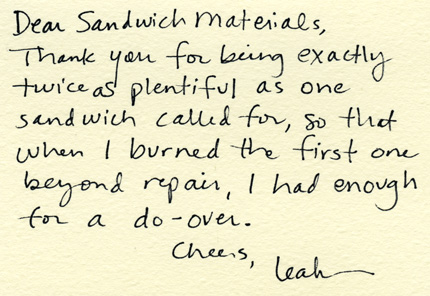 Dear Sandwich Materials,
Thank you for being exactly
twice as plentiful as one
sandwich called for, so that
when I burned the first one
beyond repair, I had enough
for a do-over.
Cheers,
Leah